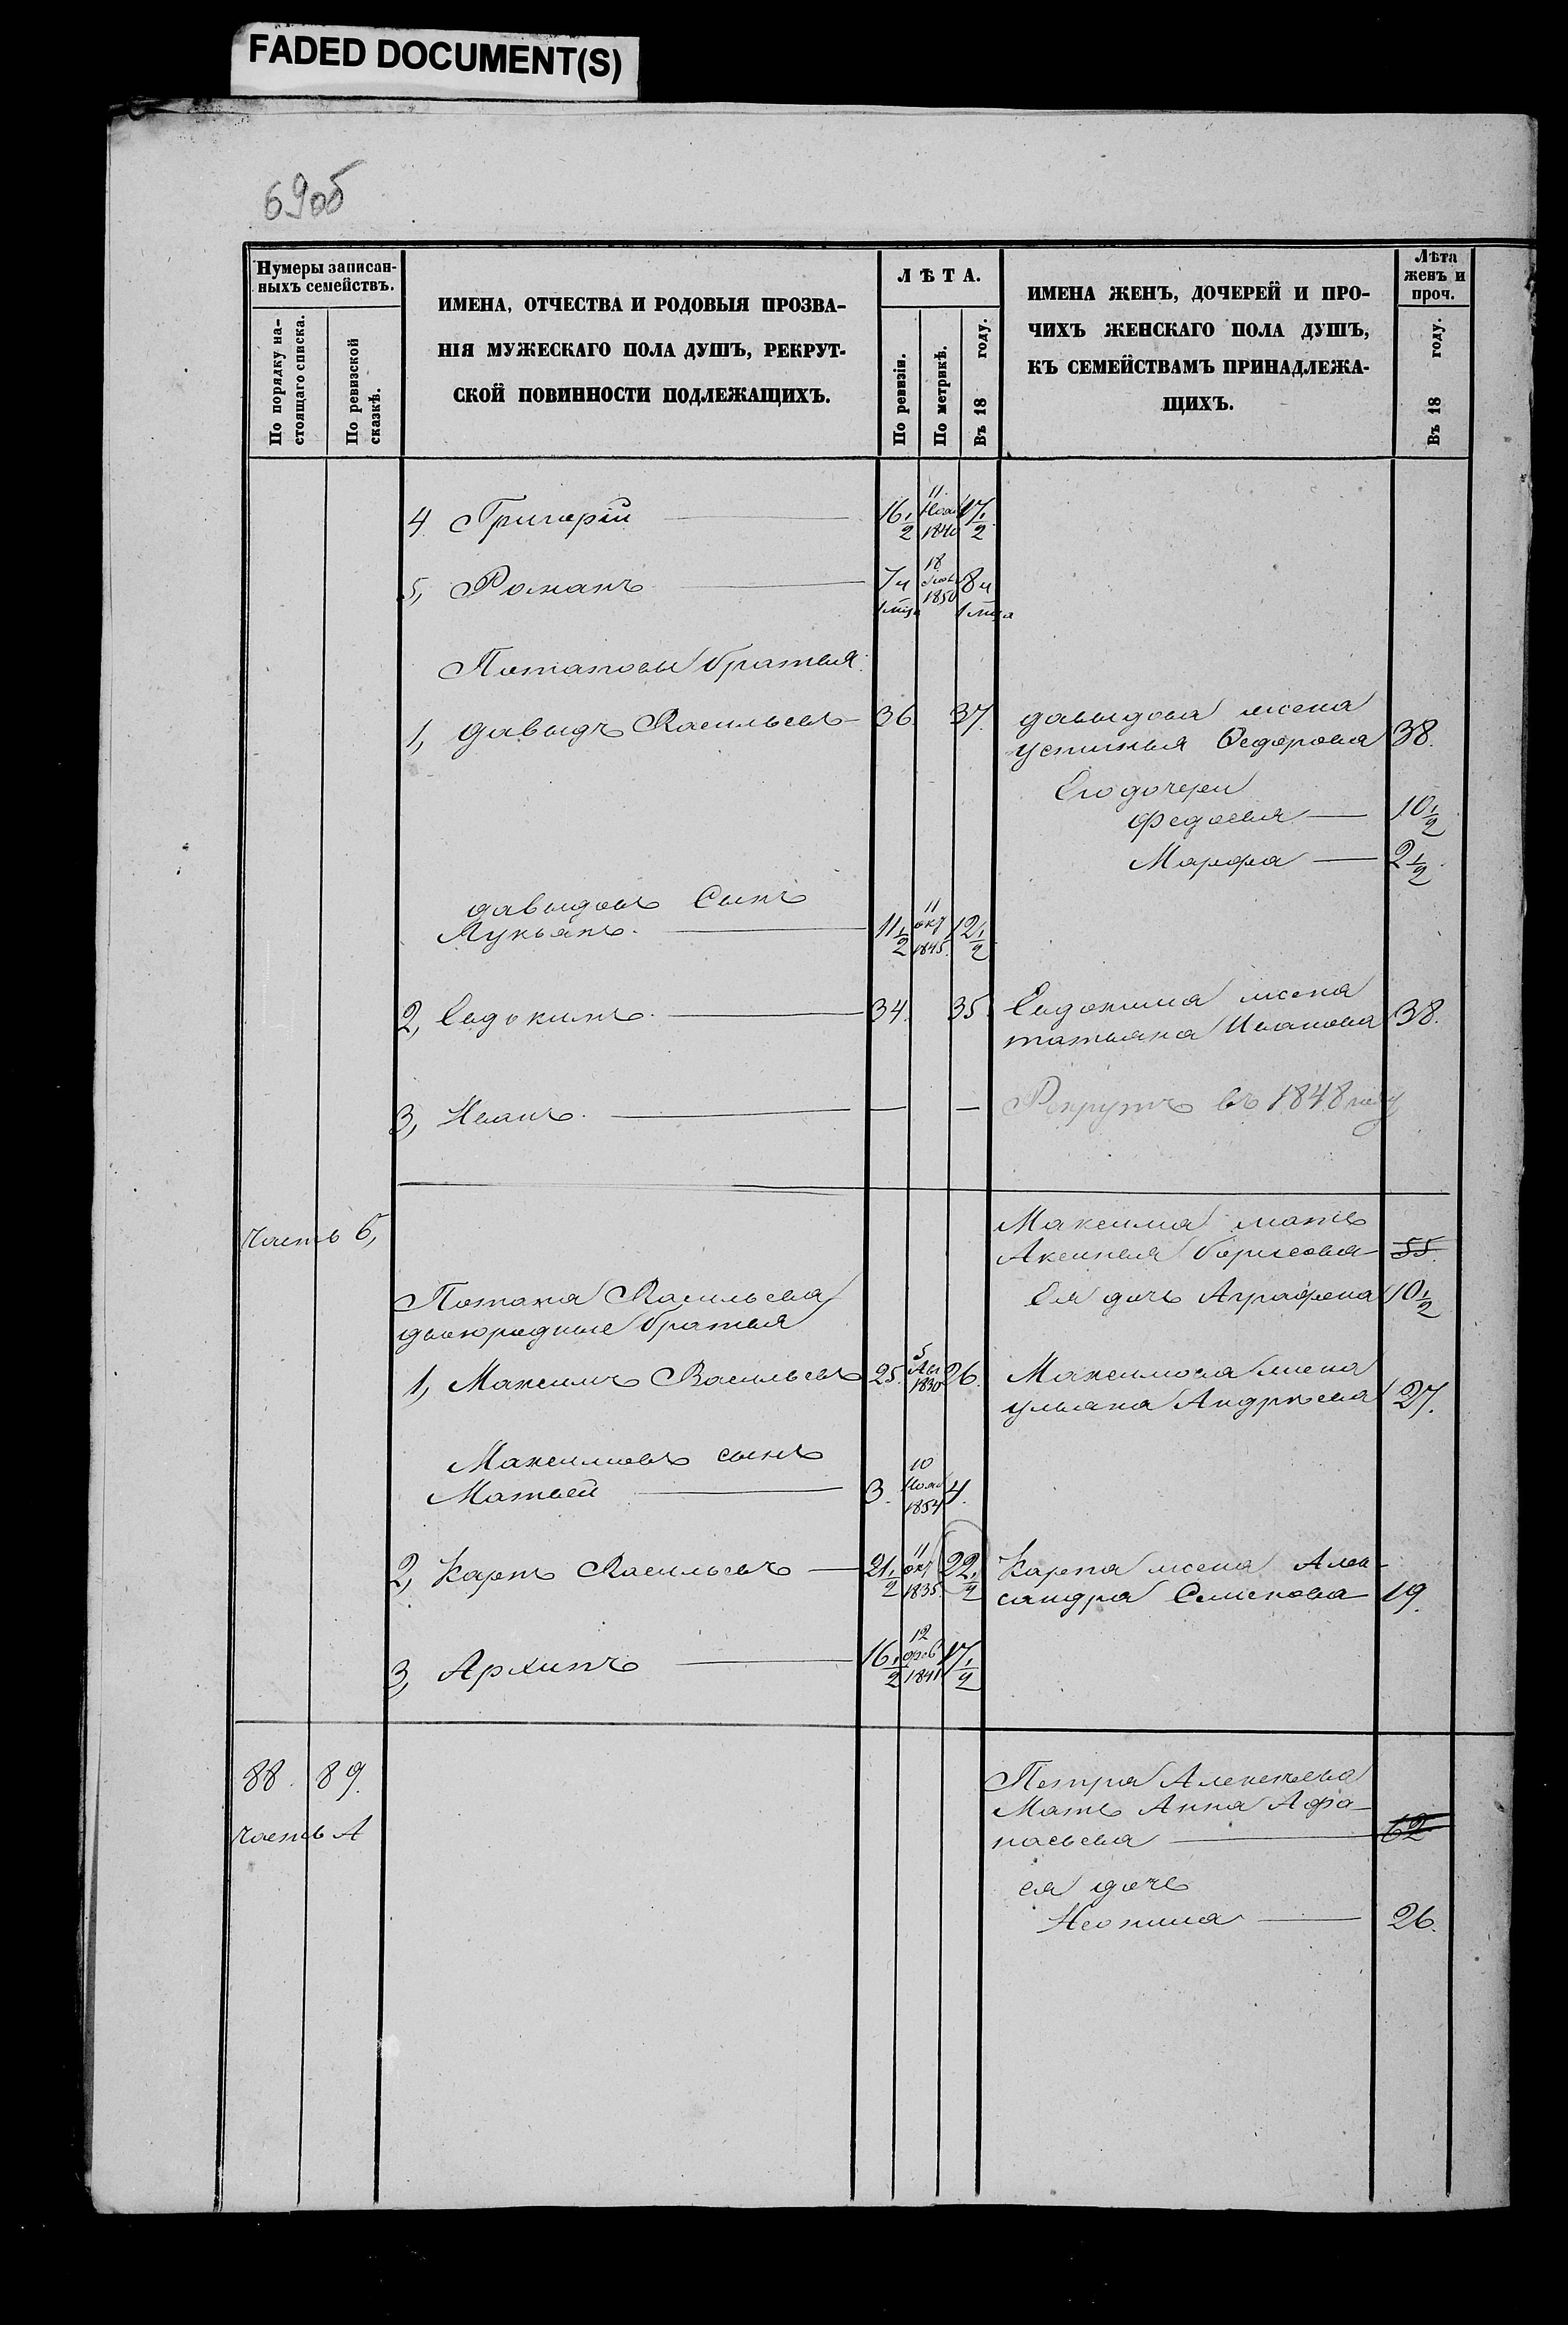 FADED DOCUMENT(S)
69об
Нумеры записан-
ныхъ семействъ.
По порядку на-
стоящаго списка.
По ревизской
сказкѣ.
ИМЕНА, ОТЧЕСТВА И РОДОВЫЯ ПРОЗВА-
НІЯ МУЖЕСКАГО ПОЛА ДУШЪ, РЕКРУТ-
СКОЙ ПОВИННОСТИ ПОДЛЕЖАЩИХЪ.
ЛѢТА.
По ревизіи.
По метрикѣ.
Въ 18 году.
ИМЕНА ЖЕНЪ, ДОЧЕРЕЙ И ПРО-
ЧИХЪ ЖЕНСКАГО ПОЛА ДУШЪ,
КЪ СЕМЕЙСТВАМЪ ПРИНАДЛЕЖА-
ЩИХЪ.
Лѣта
женъ и
проч.
Въ 18 году.
4 Григорій 16 1/2 11 Ноя 1840 17 1/2
5, Романъ 7 и 1 мца 18 1850 8 и 1 мца
Потаповы братья
1, Давыдъ Васильевъ 36. 37. Давыдова жена
Устинья Федорова 38.
Его дочери
Федосья 10 1/2
Марфа 2 1/2
Давыдовъ Сынъ
Лукьянъ. 11 1/2 11 окт 1845. 12 1/2
2, Евдокимъ. 34. 35. Евдокима жена
татьяна Иванова 38.
3, Иванъ. — — Рекрутъ въ 1848 году
часть Б,
Максима мать
Аксинья борисова 55.
Ея дочь Аграфена 10 1/2
Потапа Васильева
двоюродные братья
1, Максимъ Васильевъ 25. 5 Ав 1830 26. Максимова жена
ульяна Андрѣева 27.
Максимовъ сынъ
Матвей 3. 10 Нояб 1854 4.
2, Карпъ Васильевъ 21 1/2 11 окт 1835. 22 1/2 Карпа жена Алек-
сандра Семенова 19.
3, Архипъ 16 1/2 12 фев 1841 17 1/2
88. 89.
часть А
Петра Алексѣева
Мать Анна Афа-
насьева 62
ея дочь
Неонила 26.